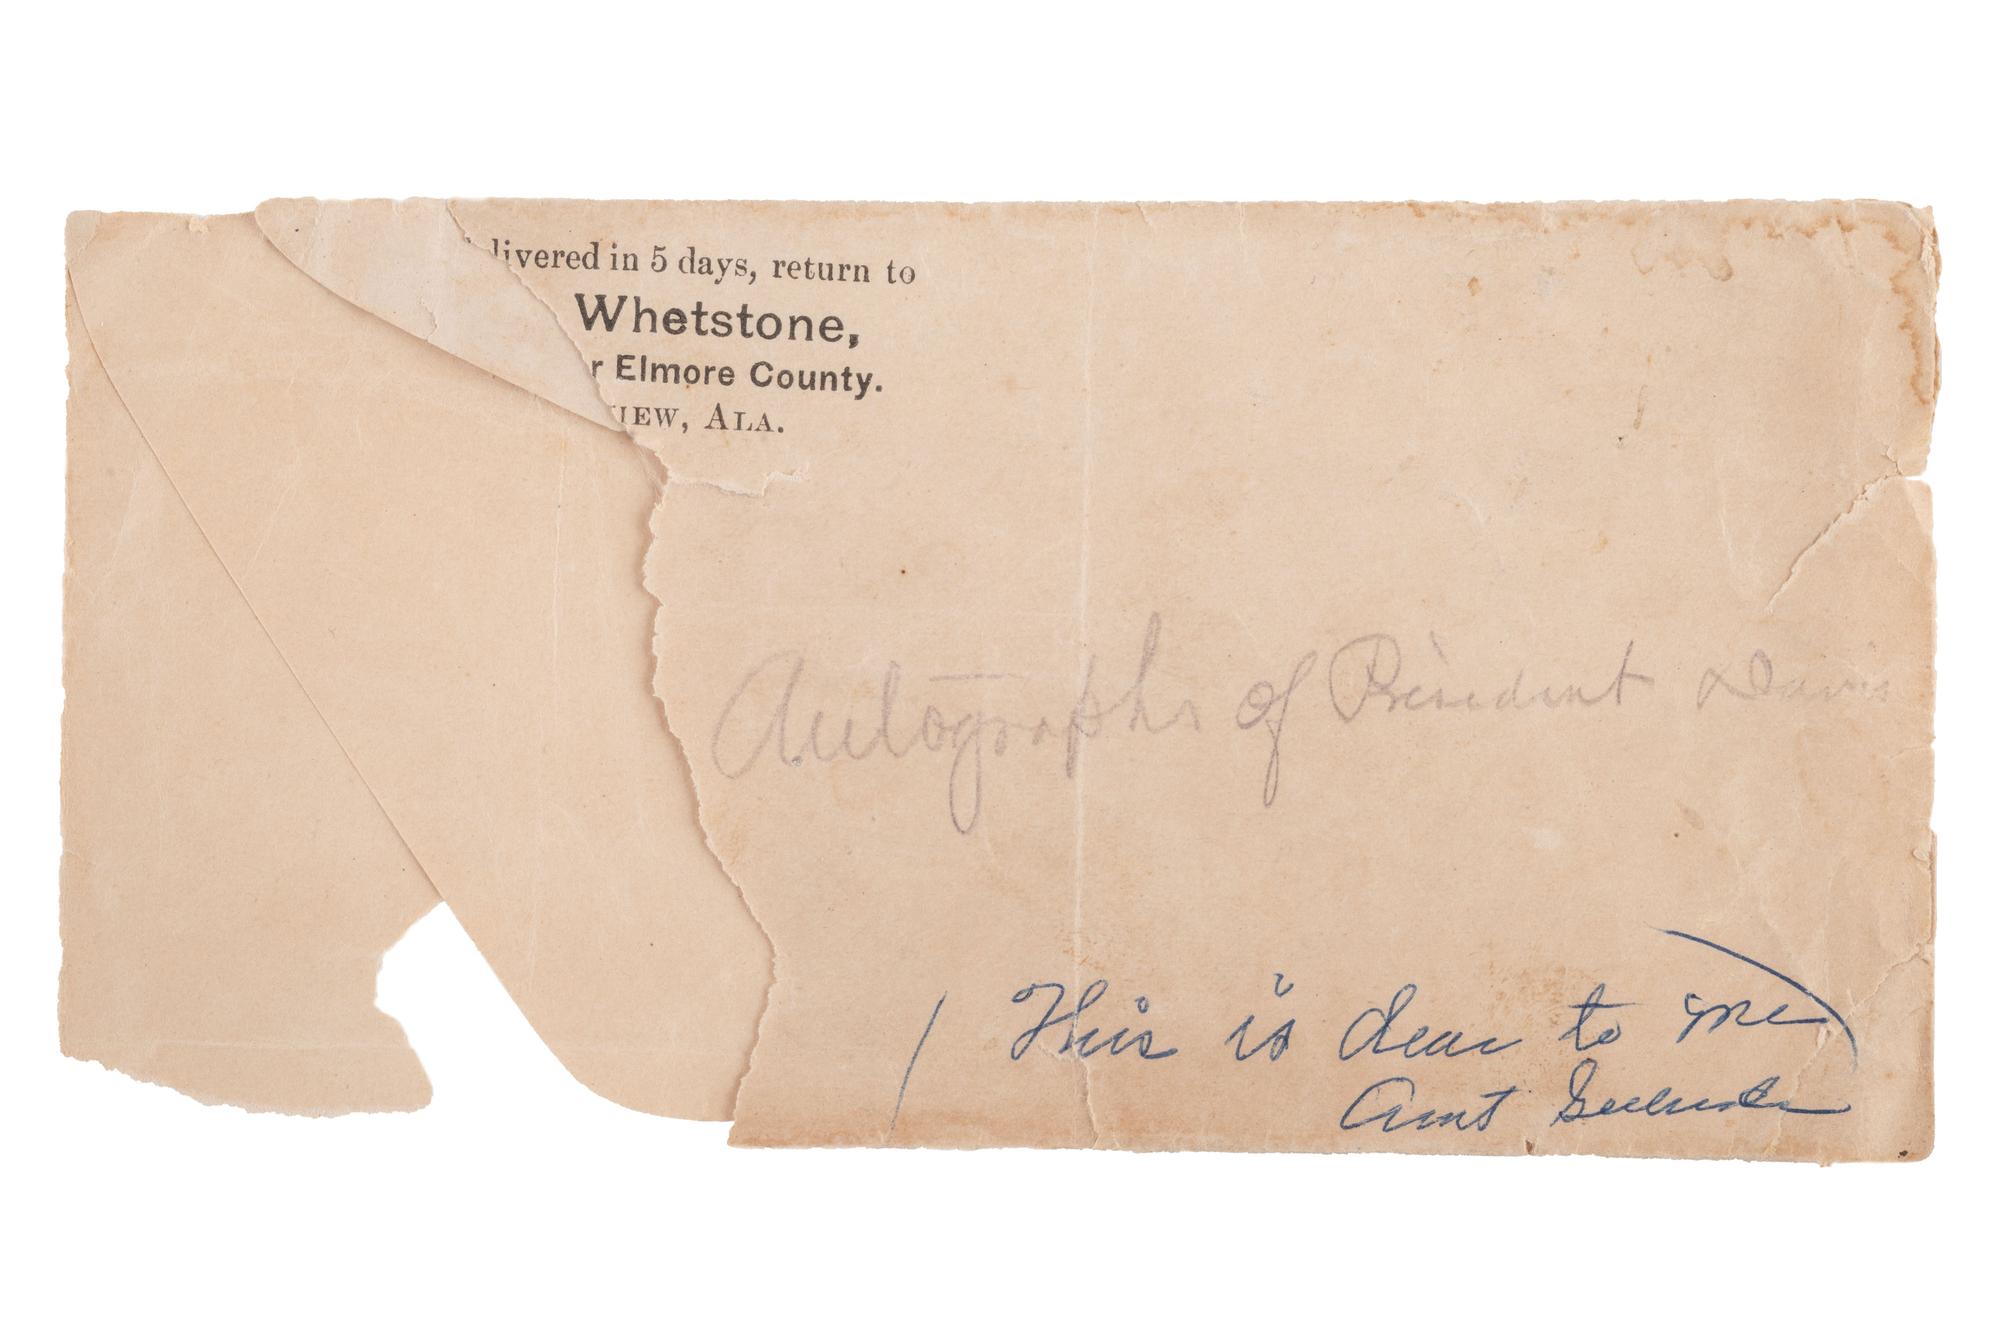 livered in 5 days, return to
Whetstone,
r Elmore County.
IEW, ALA.
Autographs of President Davis
(This is dear to me)
Aunt